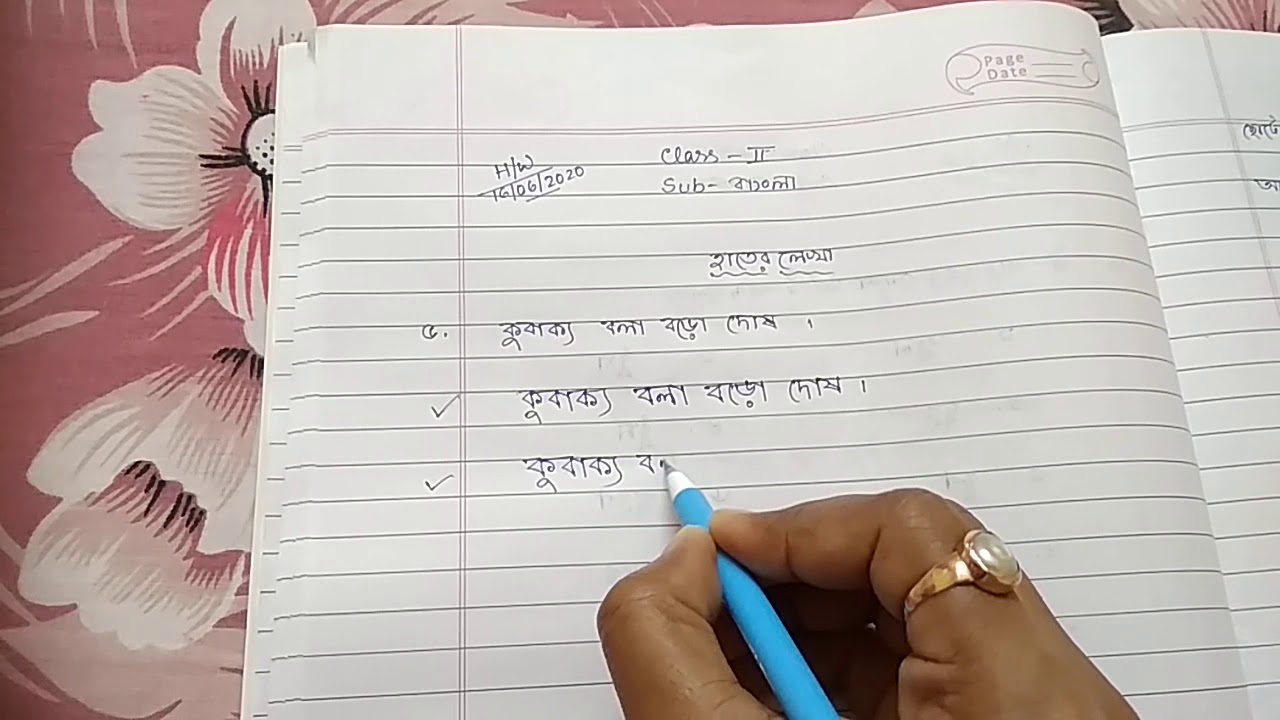 Page
Date
H/W
16/06/2020
Class - II
Sub - বাংলা
হাতের লেখা
৫. কুবাক্য বলা বড়ো দোষ ।
✓ কুবাক্য বলা বড়ো দোষ ।
✓ কুবাক্য ব